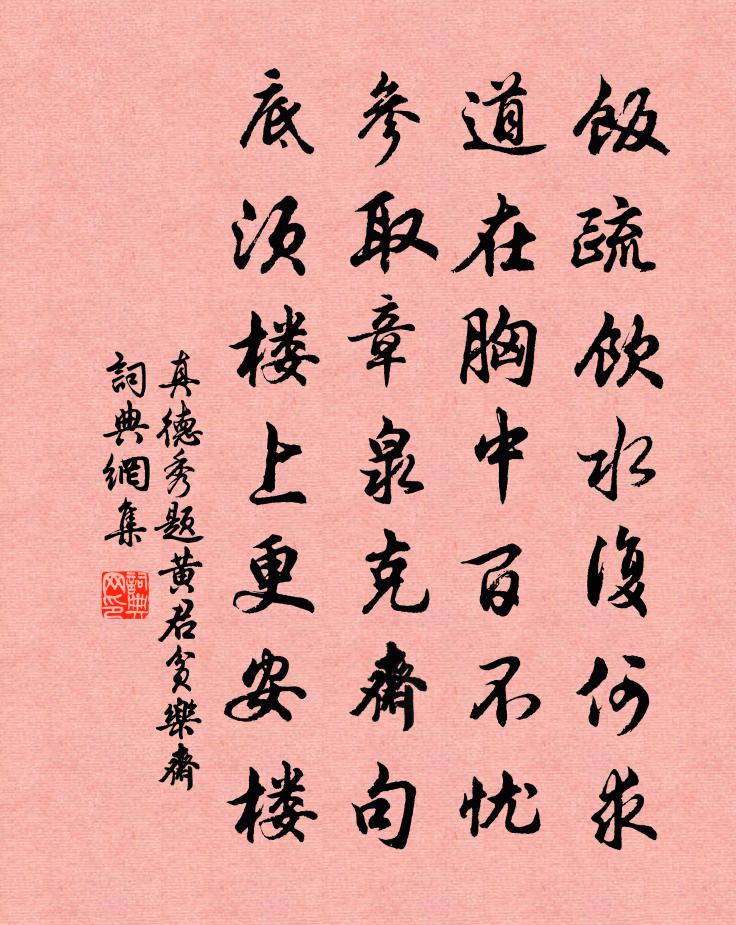 飯疏飲水復何求
道在胸中百不忧
參取章泉克齋句
底須楼上更安楼
真德秀题黄君貧樂齋
詞典網集
詞典网印